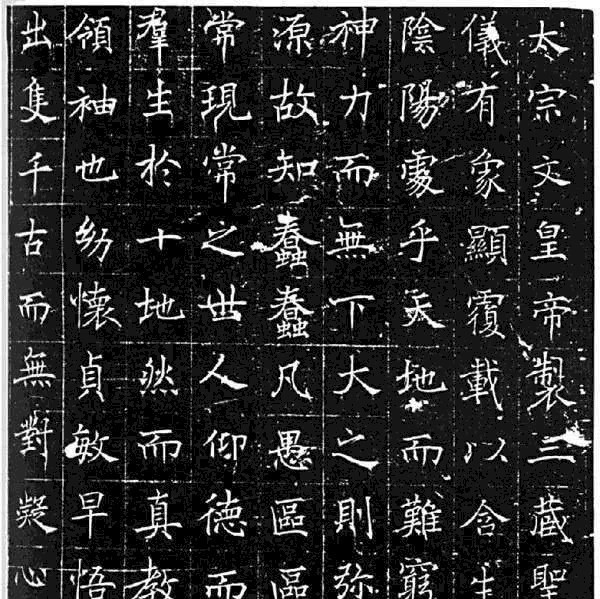 太宗文皇帝製三藏聖
儀有象顯覆載以含生
陰陽處乎天地而難窮
神力而無下大之則弥
源故知蠢蠢凡愚區區
常現常之世人仰德而
羣生於十地然而真教
領袖也幼懷貞敏早悟
出隻千古而無對凝心